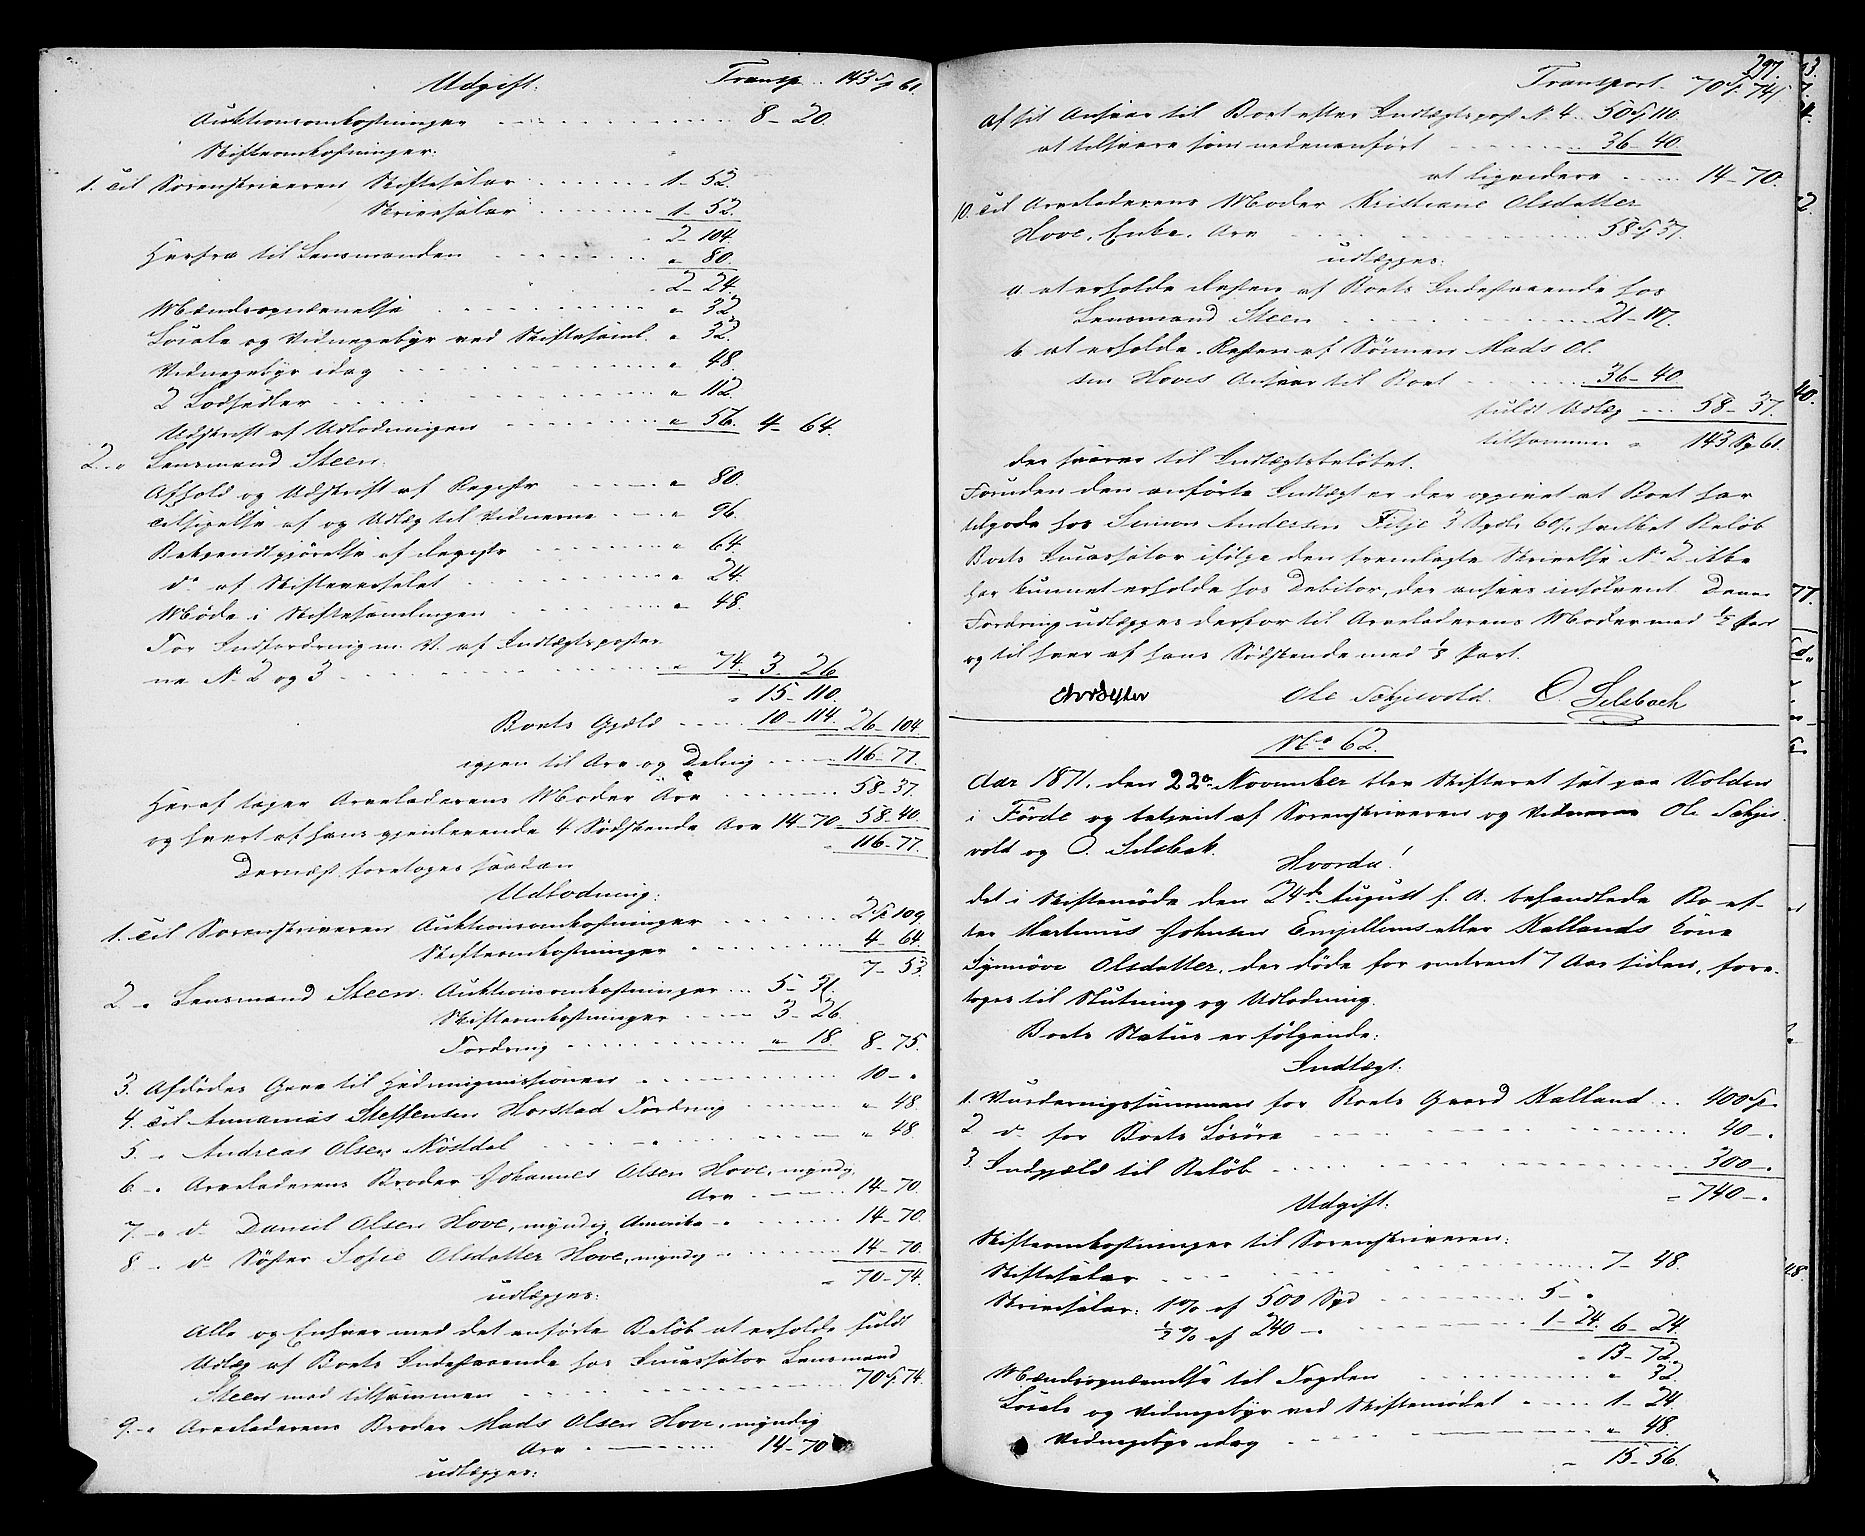 Udgift. Transp. 143 Sp 61.
Auktionsomkostninger 8 - 20.
Skifteomkostninger:
1. Til Sorenskriveren Skiftesalær 1 - 52.
Skrivesalær 1 - 52.
2 - 104.
Herfra til Lensmanden " 80.
2 - 24.
Mændsopnævnelse " 32
Locale og Vidnegebyr ved Skiftesaml. " 32.
Vidnegebyr idag " 48.
2 Lodsedler " 112.
Udskrift af Udlodningen " 56. 4 - 64.
2. " Lensmand Steen:
Afhold og Udskrift af Registr " 80.
Tilsigelse af og Udlæg til Vidnerne " 96.
Bekjendtgjørelse af Registr " 64.
do af Skifteversalet " 24.
Møde i Skiftesamlingen " 48.
For Indfordring m. V. af Indtægtsposter
ne No 2 og 3 " 74. 3 - 26
" 15 - 110.
Boets Gjæld 10 - 114. 26 - 104.
igjen til Arv og Deling 116 - 77.
Heraf tager Arveladerens Moder Arv 58 - 37.
og hvert af hans gjenlevende 4 Sødskende Arv 14 - 70. 58 - 40.
" 116 - 77.
Dernæst foretoges saadan
Udlodning:
1. Til Sorenskriveren Auktionsomkostninger 2 Sp 109.
Skifteomkostninger 4 - 64.
7 - 53.
2 - " Lensmand Steen: Auktionsomkostninger 5 - 31.
Skifteomkostninger 3 - 26.
Fordring " 18. 8 - 75.
3. Afdødes Gave til Hedningmissionen 10 - "
4. Til Annanias Steffensen Horstad Fordring " 48.
5. " Andreas Olsen Nøstdal " 48.
6 - " Arveladerens Broder Johannes Olsen Hove, myndig
Arv 14 - 70.
7 - " do Daniel Olsen Hove, myndig, Amerika 14 - 70.
8 - " do Søster Sofie Olsdatter Hove, myndig 14 - 70.
" 70 - 74.
udlægges:
Alle og Enhver med det anførte Beløb at erholde fuldt
Udlæg af Boets Indestaaende hos Incassator Lensmand
Steen med tilsammen 70 Sp 74.
9. - " Arveladerens Broder Mads Olsen Hove, myndig
Arv 14 - 70
udlægges:
297.
Transport. 70 Sp. 74 s
af sit Ansvar til Boet efter Indtægtspost No 4. 50 Sp 110.
at tilsvare som nedenanført 36 - 40.
at liqvidere 14 - 70.
10. Til Arveladerens Moder Kristiane Olsdatter
Hove, Enke. Arv 58 Sp 37.
udlægges:
a. at erholde Resten af Boets Indestaaende hos
Lensmand Steen 21 - 117.
b. at erholde Resten af Sønnen Mads Ol.
sen Hoves Ansvar til Boet 36 - 40.
fuldt Udlæg 58 - 37.
tilsammen " 143 Sp 61.
der svarer til Indtægtsbeløbet.
Foruden den anførte Indtægt er der opgivet at Boet har
tilgode hos Simon Andersen Fitje 3 Spdlr 60 s, hvilket Beløb
Boets Incassator ifølge den fremlagte Skrivelse No 2 ikke
har kunnet erholde hos Debitor, der ansees insolvent. Denne
Fordring udlægges derfor til Arveladerens Moder med 1/2 Part
og til hver af hans Sødskende med 1/8 Part.
Ole Schjervold. O. Selsbach
No 62.
Aar 1871, den 22de November blev Skifteret sat paa Volden
i Førde og betjent af Sorenskriveren og Vidnerne Ole Schjer.
vold og O. Selsbak.
Hvorda!
det i Skiftemøde den 24de August f. A. behandlede Bo ef-
ter Martinus Johnsen Engellems eller Kallands Kone
Synnøve Olsdatter, der døde for omtrent 7 Aar siden, fore-
toges til Slutning og Udlodning.
Boets Status er følgende:
Indtægt.
1. Vurderingssummen for Boets Gaard Kalland 400 Sp.
2 do for Boets Løsøre 40 - "
3. Indgjæld til Beløb 300 - "
" 740 - "
Udgift.
Skifteomkostninger til Sorenskriveren:
Skiftesalær 7 - 48.
Skrivesalær: 1 % af 500 Spd 5 - "
1/2 % af 240 - " 1 - 24. 6 - 24.
" 13 - 72.
Mændsopnævnelse til Fogden " 32
Locale og Vidnegebyr ved Skiftemødet 1 - 24.
Vidnegebyr idag " 48.
" 15 - 56.